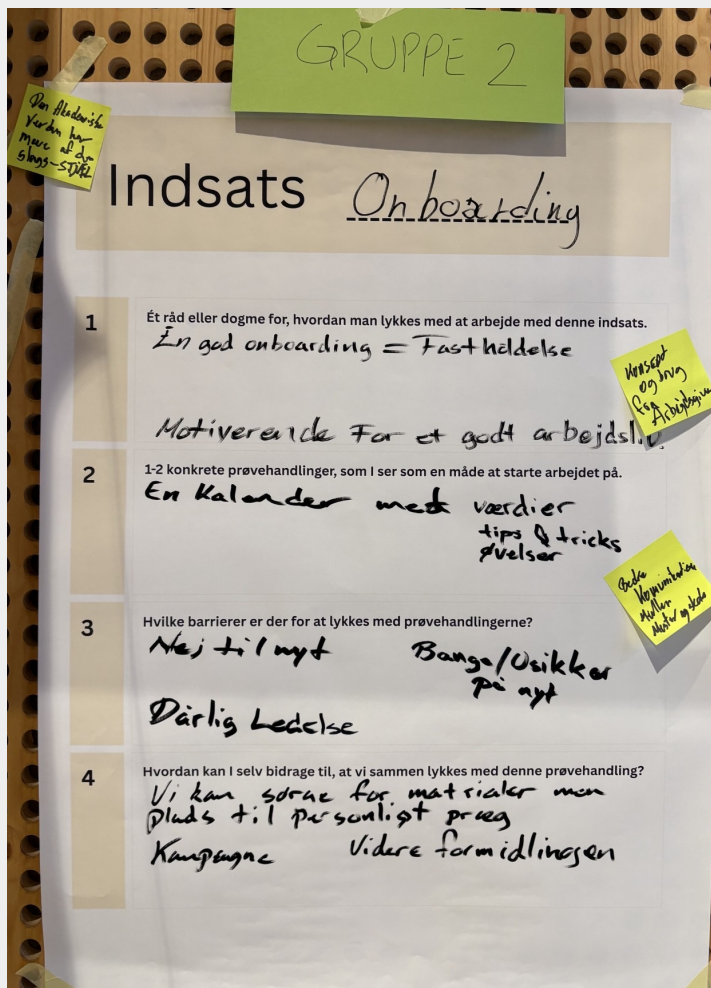 GRUPPE 2
Den Akademiske
verden har
mere af den
slags - STJÆL
Indsats Onboarding
1
Ét råd eller dogme for, hvordan man lykkes med at arbejde med denne indsats.
En god onboarding = Fastholdelse
Motiverende For et godt arbejdsliv
Koncept
og brug
for
Arbejdsgiver
2
1-2 konkrete prøvehandlinger, som I ser som en måde at starte arbejdet på.
En Kalender med værdier
tips & tricks
øvelser
Bedre
Kommunikation
Mellem
Mester og skole
3
Hvilke barrierer er der for at lykkes med prøvehandlingerne?
Nej til nyt
Bange/Usikker
på nyt
Dårlig Ledelse
4
Hvordan kan I selv bidrage til, at vi sammen lykkes med denne prøvehandling?
Vi kan sørge for matrialer men
plads til personligt præg
Kampagne Videre formidlingen